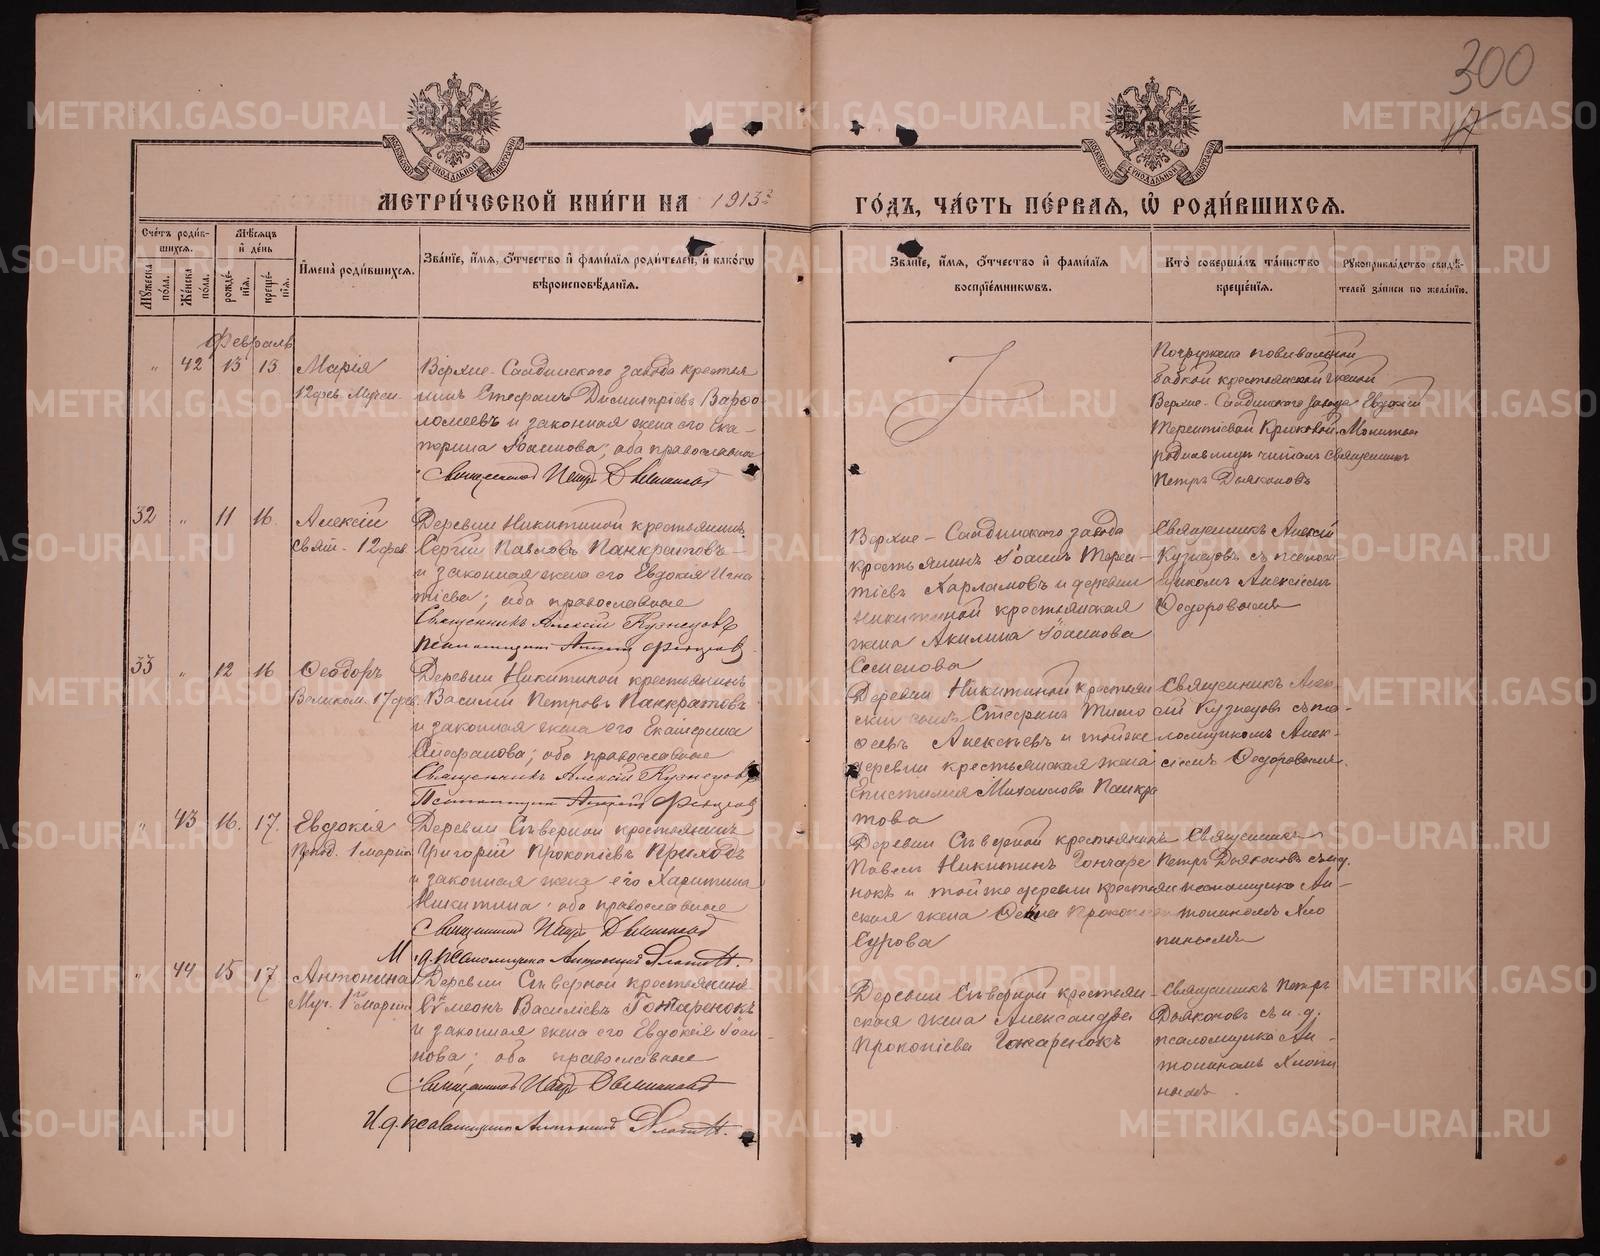 300
17
МЕТРИ́ЧЕСКОЙ КНИ́ГИ НА 1913й
ГО́ДЪ, ЧА́СТЬ ПЕ́РВАЯ, Ѽ РОДИ́ВШИХСЯ.
Сче́тъ роди́вшихся.
Мѣ́сяцъ и҆ де́нь
Мꙋ́жеска по́ла.
Же́нска по́ла.
рожде́нїѧ.
креще́нїѧ.
И҆мена̀ роди́вшихсѧ.
Зва́нїе, и҆́мѧ, ѻ҆́тчество и҆ фами́лїѧ роди́телей, и҆ како́гѡ
вѣроисповѣ́данїѧ.
Зва́нїе, и҆́мѧ, ѻ҆́тчество и҆ фами́лїѧ
воспрїе́мникѡвъ.
Кто̀ соверша́лъ та́инство
креще́нїѧ.
Рꙋкоприкла́дство свидѣ́-
телей за́писи по жела́нїю.
Февраль
" 42 13 13
Марія
12 фев.
Верхне-Салдинского завода крестья
нинъ Стефанъ Димитріевъ Варѳо
ломеевъ и законная жена его Ека-
терина Іоаннова, оба православные
Священникъ Петръ Дьяконовъ
Погружена повивальной
бабкой крестьянской женой
Верхне-Салдинского завода Евдокіей
Терентіевой Крюковой. Молитвы
читалъ священникъ
Петръ Дьяконовъ
32 " 11 16.
Алексій
Свят. 12 фев.
Деревни Никитиной крестьянинъ
Сергій Павловъ Панкратовъ
и законная жена его Евдокія Игна
тіева; оба православные
Священникъ Алексій Кузнецовъ
Верхне-Салдинского завода
крестьянинъ Іоаннъ Терен-
тіевъ Харламовъ и деревни
Никитиной крестьянская
жена Акилина Іоаннова
Семенова
Священникъ Алексій
Кузнецовъ съ псалом
щикомъ Алексіемъ
Ѳедоровымъ
33 " 12 16
Ѳеодоръ
Великом. 17 фев.
Деревни Никитиной крестьянинъ
Василій Петровъ Панкратовъ
и законная жена его Екатерина
Стефанова; оба православные
Священникъ Алексій Кузнецовъ
Деревни Никитиной крестьян
скій сынъ Стефанъ Тимо
ѳеевъ Алексѣевъ и тойже
деревни крестьянская жена
Епистимія Михаилова Панкра
това
Священникъ Алек-
сій Кузнецовъ съ пса-
ломщикомъ Алек-
сіемъ Ѳедоровымъ.
" 43 16. 17.
Евдокія
Преп. 1 марта
Деревни Сѣверной крестьянинъ
Григорій Прокопіевъ Приходъ
и законная жена его Харитина
Никитина; оба православные
Священникъ Петръ Дьяконовъ
И. д. псаломщика Антонинъ
Деревни Сѣверной крестьянинъ
Павелъ Никитинъ Гончаре
нокъ и тойже деревни крестьян
ская жена Прокопіева
Сурова
Священникъ
Петръ Дьяконовъ съ и. д.
псаломщика Ан-
тониномъ Хло
пинымъ
" 44 15 17
Антонина
Муч. 1го марта
Деревни Сѣверной крестьянинъ
Сѵмеонъ Василіевъ Гончаренокъ
и законная жена его Евдокія Іоан-
нова; оба православные
Священникъ Петръ Дьяконовъ
И. д. псаломщика Антонинъ
Деревни Сѣверной крестьян-
ская жена Александра
Прокопіева Гончаренокъ
Священникъ Петръ
Дьяконовъ съ и. д.
псаломщика Ан-
тониномъ Хлопи
нымъ.
METRIKI.GASO-URAL.RU